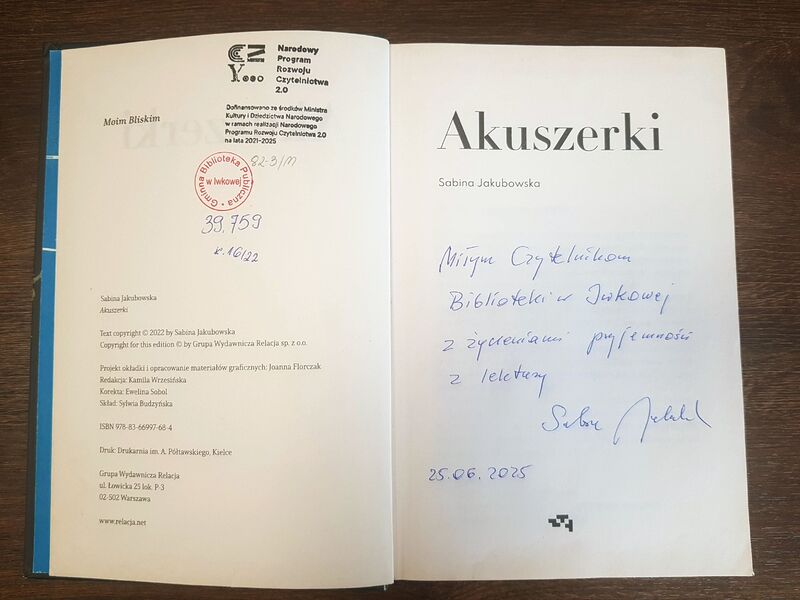 Narodowy
Program
Rozwoju
Czytelnictwa
2.0
Dofinansowano ze środków Ministra
Kultury i Dziedzictwa Narodowego
w ramach realizacji Narodowego
Programu Rozwoju Czytelnictwa 2.0
na lata 2021-2025
Moim Bliskim
82-3/M
Gminna Biblioteka Publiczna
w Iwkowej
39.759
k. 16/22
Sabina Jakubowska
Akuszerki
Text copyright © 2022 by Sabina Jakubowska
Copyright for this edition © by Grupa Wydawnicza Relacja sp. z o.o.
Projekt okładki i opracowanie materiałów graficznych: Joanna Florczak
Redakcja: Kamila Wrzesińska
Korekta: Ewelina Sobol
Skład: Sylwia Budzyńska
ISBN 978-83-66997-68-4
Druk: Drukarnia im. A. Półtawskiego, Kielce
Grupa Wydawnicza Relacja
ul. Łowicka 25 lok. P-3
02-502 Warszawa
www.relacja.net
Akuszerki
Sabina Jakubowska
Miłym Czytelnikom
Biblioteki w Iwkowej
z życzeniami przyjemności
z lektury
25.06.2025